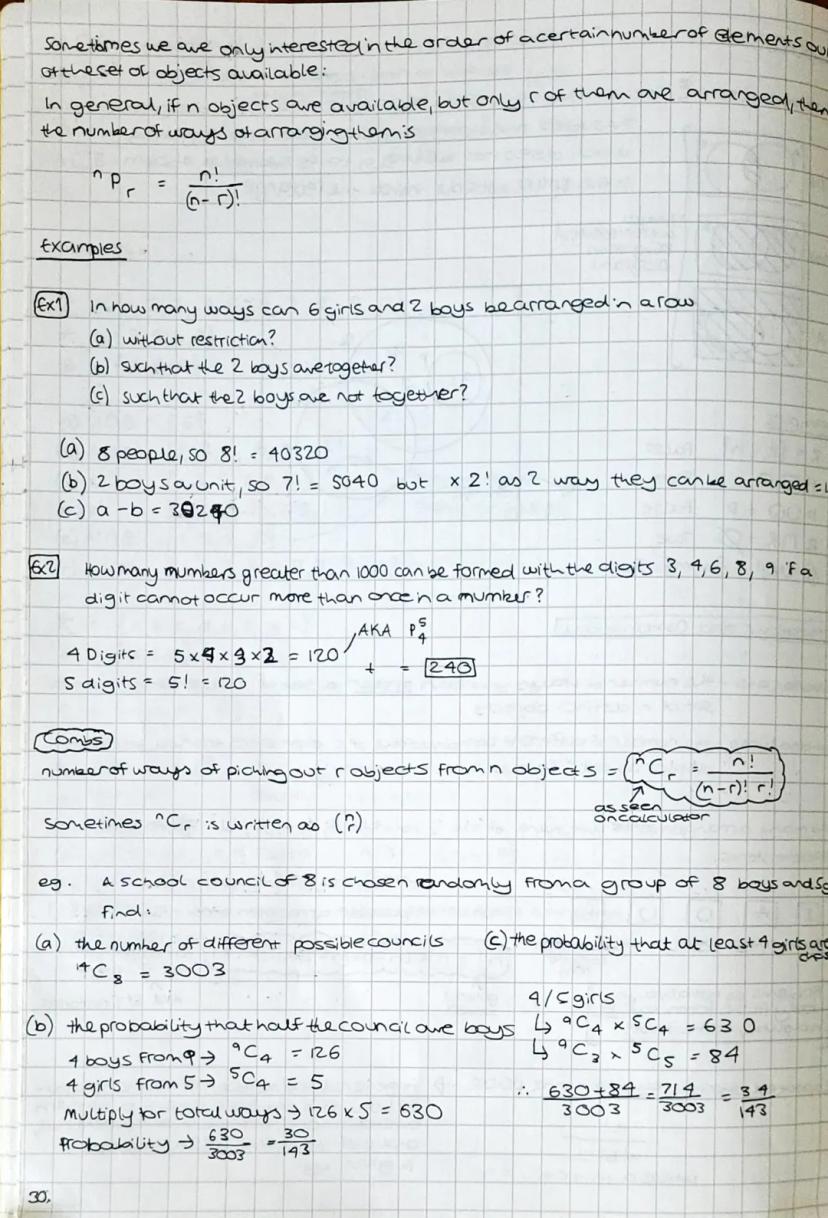 Sometimes we are only interested in the order of a certain number of elements ou
of the set of objects available:
In general, if n objects are available, but only r of them are arranged, then
the number of ways of arranging them is
ⁿPᵣ = n!/(n-r)!
Examples
Ex1 In how many ways can 6 girls and 2 boys be arranged in a row
(a) without restriction?
(b) such that the 2 boys are together?
(c) such that the 2 boys are not together?
(a) 8 people, so 8! = 40320
(b) 2 boys a unit, so 7! = 5040 but × 2! as 2 way they can be arranged =
(c) a - b = 30240
Ex2 How many numbers greater than 1000 can be formed with the digits 3, 4, 6, 8, 9 if a
digit cannot occur more than once in a number?
4 Digits = 5 × 4 × 3 × 2 = 120 AKA P⁵₄
5 digits = 5! = 120 + = 240
Combs
number of ways of picking out r objects from n objects = ⁿCᵣ = n!/(n-r)! r!
as seen
on calculator
sometimes ⁿCᵣ is written as (ⁿᵣ)
eg. A school council of 8 is chosen randomly from a group of 8 boys and 5g
find:
(a) the number of different possible councils
¹⁴C₈ = 3003
(b) the probability that half the council are boys
4 boys from 9 → ⁹C₄ = 126
4 girls from 5 → ⁵C₄ = 5
multiply for total ways → 126 × 5 = 630
Probability → 630/3003 = 30/143
(c) the probability that at least 4 girls are
chos
4/5 girls
↳ ⁹C₄ × ⁵C₄ = 630
↳ ⁹C₃ × ⁵C₅ = 84
∴ 630+84/3003 = 714/3003 = 34/143
30.